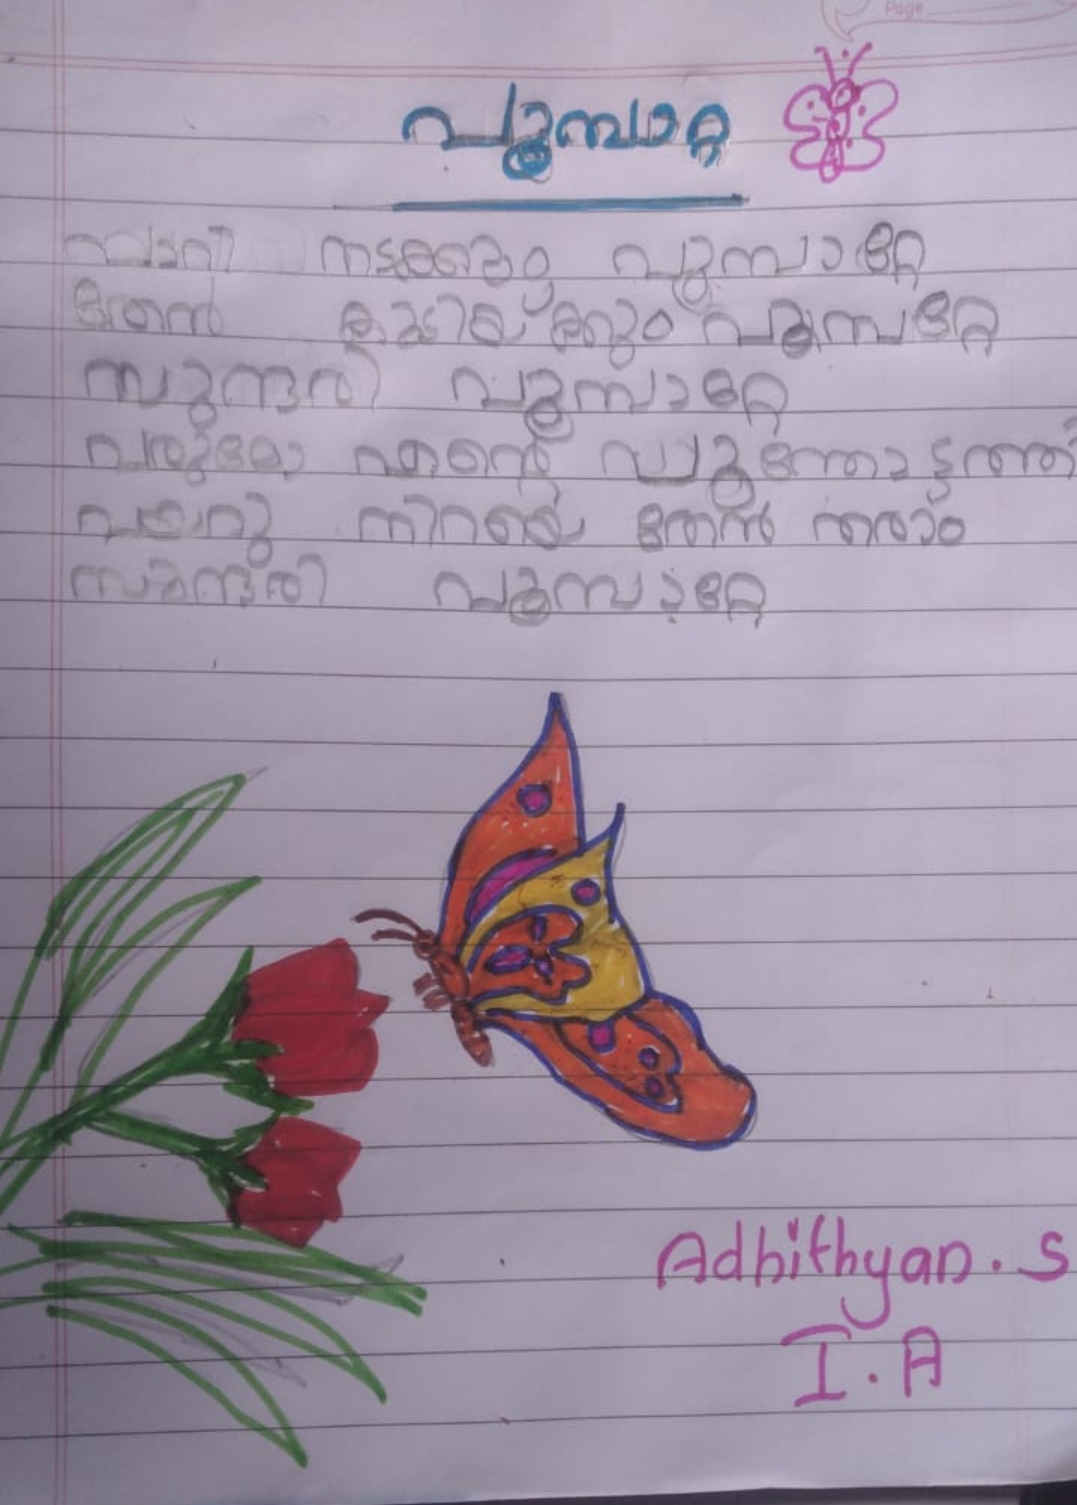 Page
പൂമ്പാറ്റ
പാറി നടക്കും പൂമ്പാറ്റേ
തേൻ കുടിയ്ക്കും പൂമ്പറ്റേ
സുന്ദരി പൂമ്പാറ്റേ
വരുമോ എന്റെ പൂന്തോട്ടത്തി
വയറു നിറയെ തേൻ തരാം
സുന്ദരി പൂമ്പാറ്റേ
Adhithyan. S
I. A